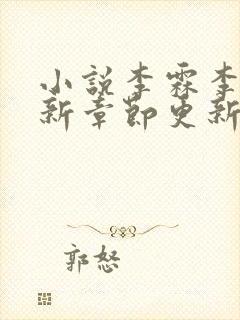 小说李霖李
新章节更新
郭怒